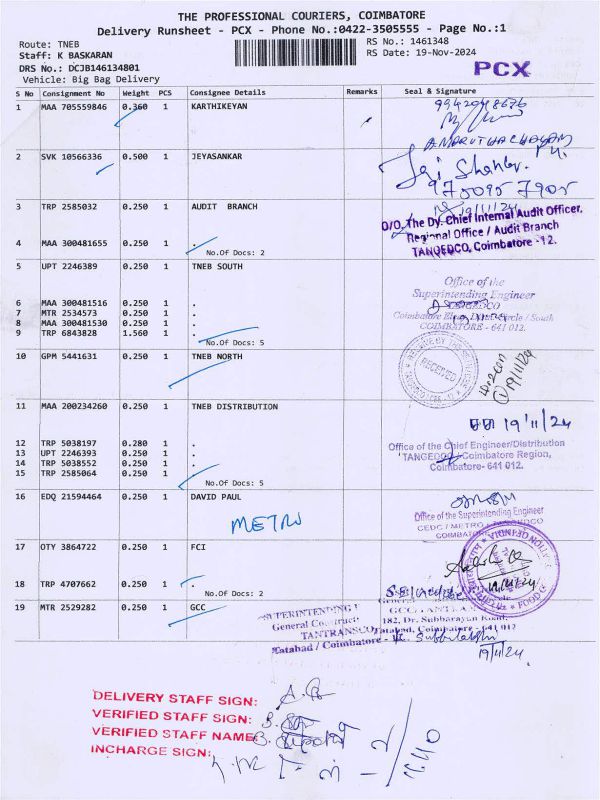 THE PROFESSIONAL COURIERS, COIMBATORE
Delivery Runsheet - PCX - Phone No.:0422-3505555 - Page No.:1
Route: TNEB
Staff: K BASKARAN
DRS No.: DCJB146134801
Vehicle: Big Bag Delivery
RS No.: 1461348
RS Date: 19-Nov-2024
PCX
S No Consignment No Weight PCS Consignee Details Remarks Seal & Signature
1 MAA 705559846 0.360 1 KARTHIKEYAN
2 SVK 10566336 0.500 1 JEYASANKAR
Jai Shankar.
3 TRP 2585032 0.250 1 AUDIT BRANCH
19/11/24
O/O. The Dy. Chief Internal Audit Officer,
Regional Office / Audit Branch
TANGEDCO, Coimbatore - 12.
4 MAA 300481655 0.250 1 .
No.Of Docs: 2
5 UPT 2246389 0.250 1 TNEB SOUTH
Office of the
Superintending Engineer
6 MAA 300481516 0.250 1 .
7 MTR 2534573 0.250 1 .
8 MAA 300481530 0.250 1 .
9 TRP 6843828 1.560 1 .
No.Of Docs: 5
COIMBATORE - 641 012.
10 GPM 5441631 0.250 1 TNEB NORTH
RECEIVED
19/11/24
11 MAA 200234260 0.250 1 TNEB DISTRIBUTION
19/11/24
12 TRP 5038197 0.280 1 .
13 UPT 2246393 0.250 1 .
14 TRP 5038552 0.250 1 .
15 TRP 2585064 0.250 1 .
No.Of Docs: 5
Office of the Chief Engineer/Distribution
TANGEDCO/Coimbatore Region,
Coimbatore- 641 012.
16 EDQ 21594464 0.250 1 DAVID PAUL
METRO
Office of the Superintending Engineer
CEDC / METRO / TANGEDCO
17 OTY 3864722 0.250 1 FCI
18 TRP 4707662 0.250 1 .
No.Of Docs: 2
19 MTR 2529282 0.250 1 GCC
182, Dr. Subbarayan Road,
Tatabad, Coimbatore - 641 012
19/11/24.
DELIVERY STAFF SIGN:
VERIFIED STAFF SIGN:
VERIFIED STAFF NAME:
INCHARGE SIGN: